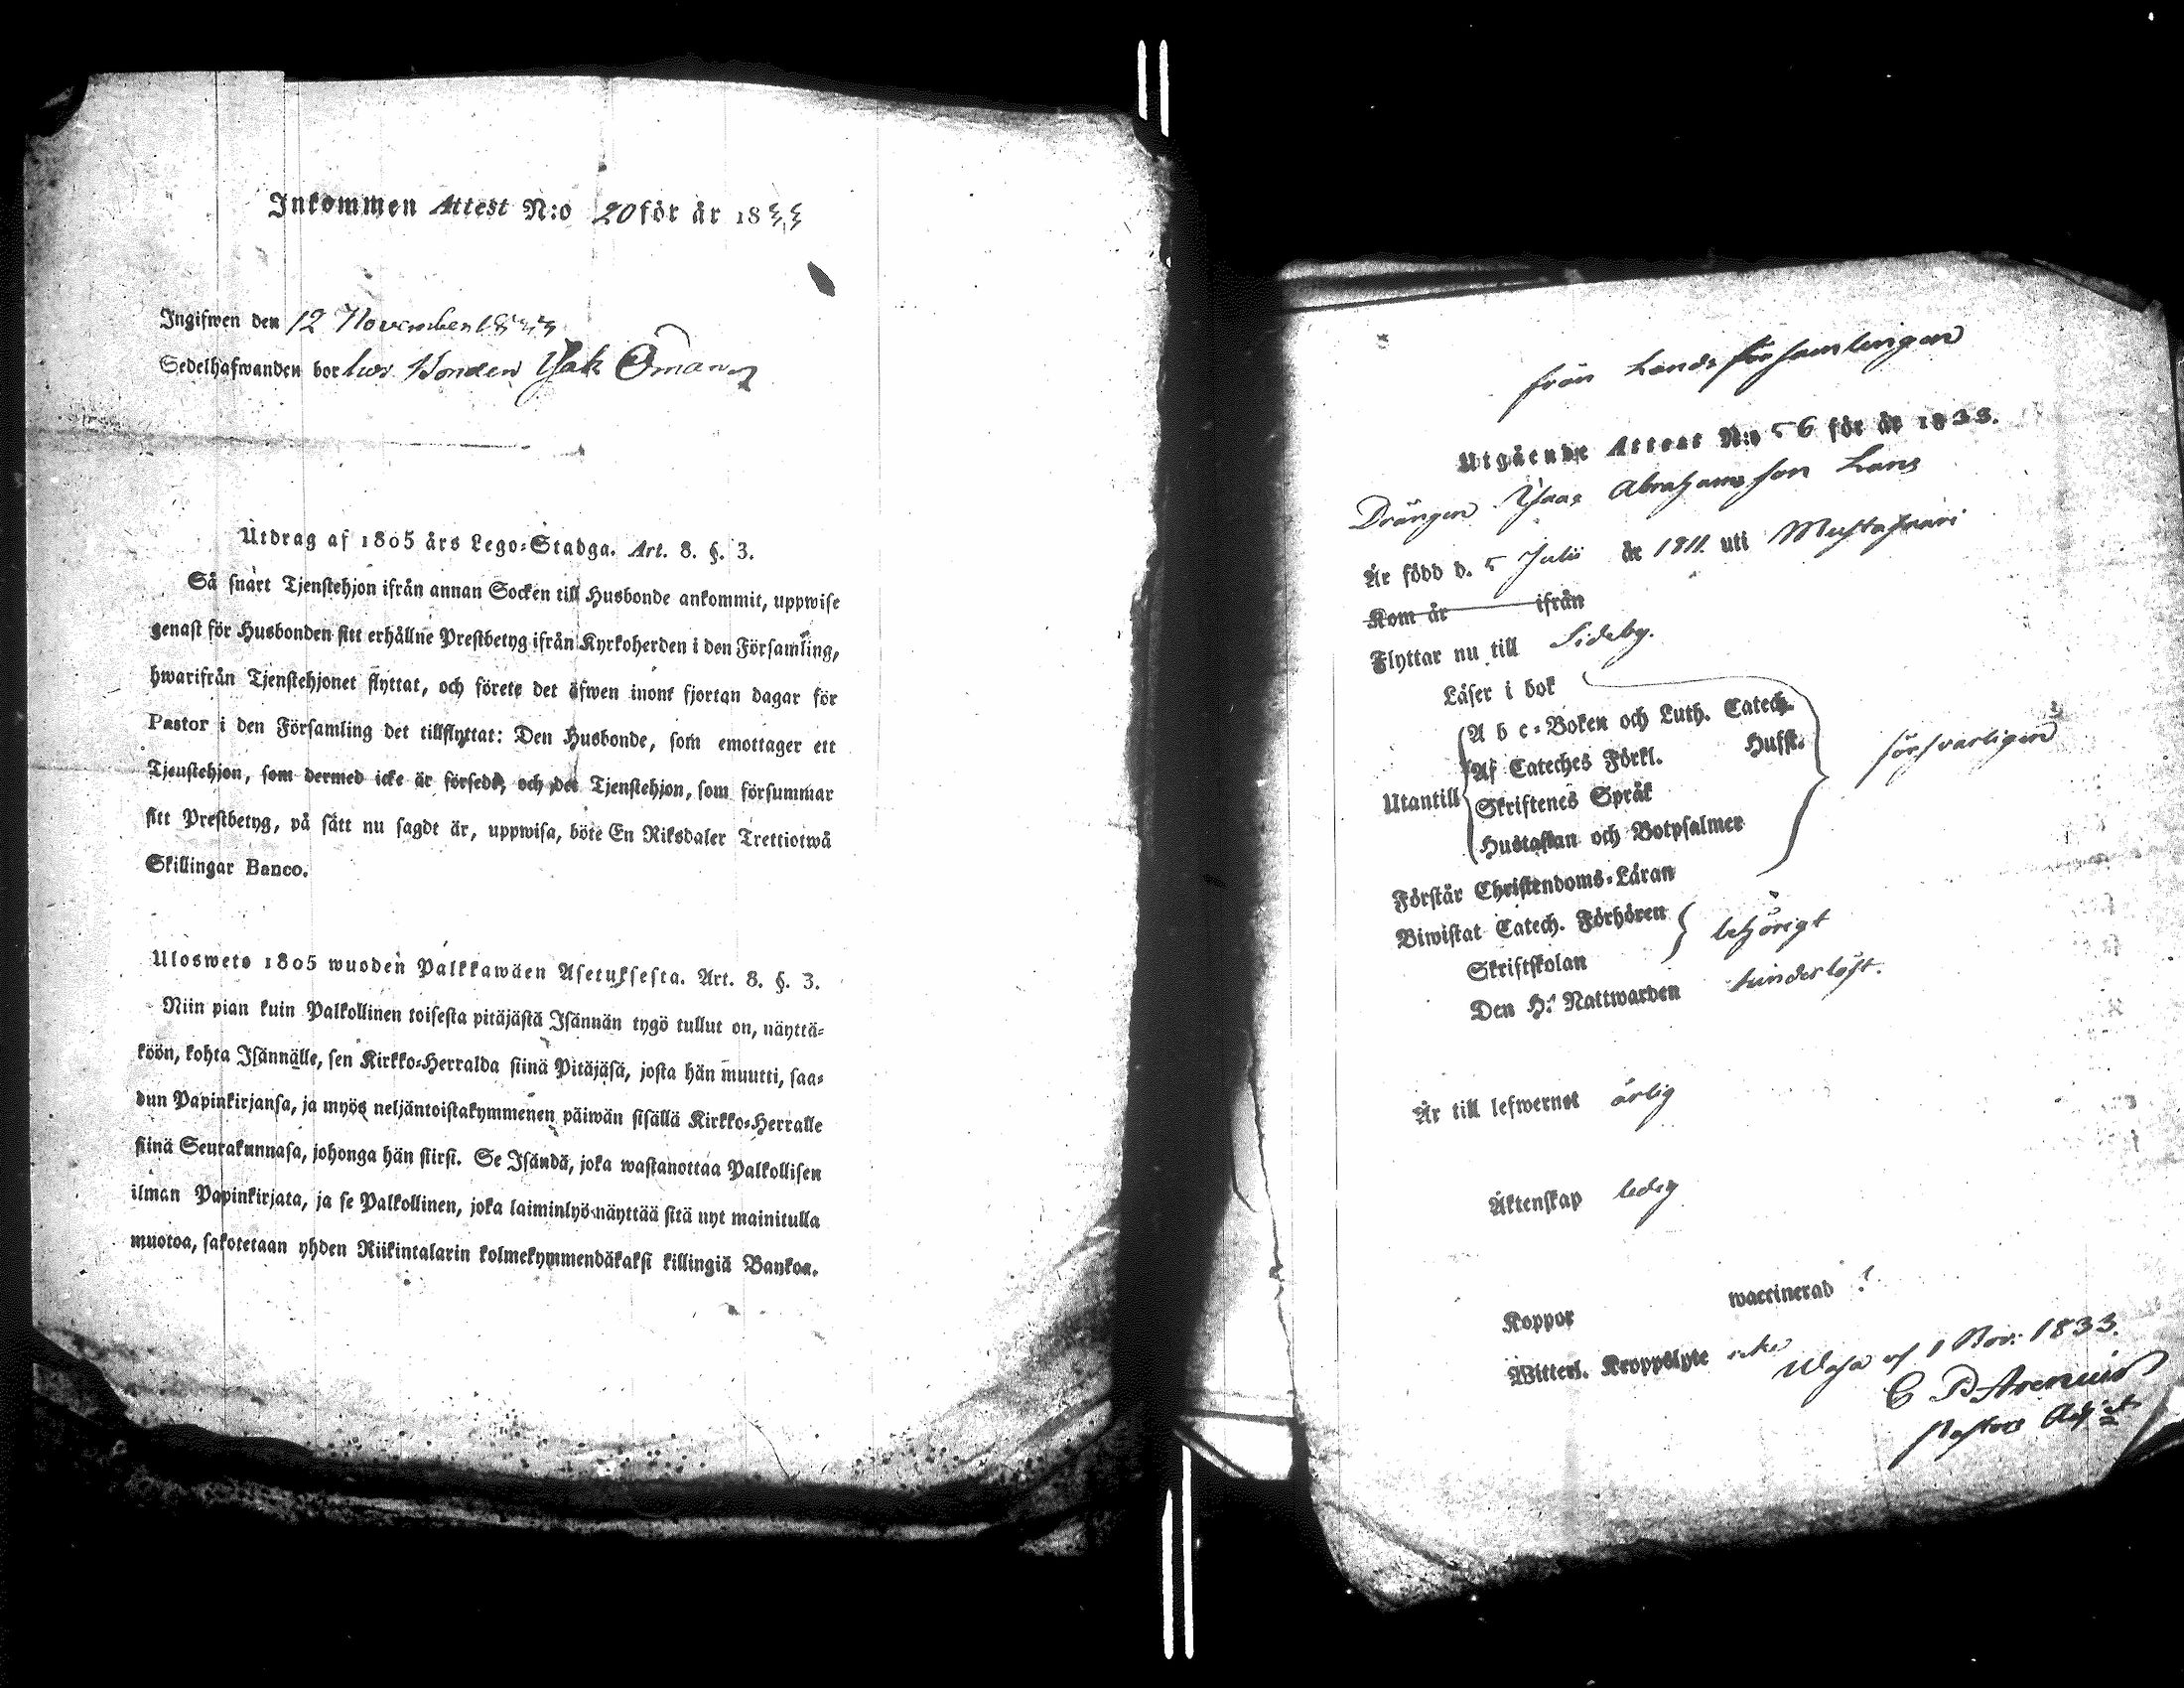 Inkommen Attest N:o 20 för år 1833
Ingifwen den 12 November 1833
Sedelhafwanden bor hos Bonden Isak Öman
Utdrag af 1805 års Lego-Stadga. Art. 8. §. 3.
Så snart Tjenstehjon ifrån annan Socken till Husbonde ankommit, uppwise
genast för Husbonden sitt erhållne Prestbetyg ifrån Kyrkoherden i den Församling,
hwarifrån Tjenstehjonet flyttat, och förete det äfwen inont fjortan dagar för
Pastor i den Församling det tillflyttat: Den Husbonde, som emottager ett
Tjenstehjon, som dermed icke är försedt, och det Tjenstehjon, som försummar
sitt Prestbetyg, på sätt nu sagdt är, uppwisa, böte En Riksdaler Trettiotwå
Skillingar Banco.
Uloswets 1805 wuoden Palkkawäen Asetuksesta. Art. 8. §. 3.
Niin pian kuin Palkollinen toisesta pitäjästä Isännän tygö tullut on, näyttä-
köön, kohta Isännälle, sen Kirkko-Herralda siinä Pitäjäsä, josta hän muutti, saa-
dun Papinkirjansa, ja myös neljäntoistakymmenen päiwän sisällä Kirkko-Herralle
siinä Seurakunnasa, johonga hän siirsi. Se Isändä, joka wastanottaa Palkollisen
ilman Papinkirjata, ja se Palkollinen, joka laiminlyö näyttää sitä nyt mainitulla
muotoa, sakotetaan yhden Riikintalarin kolmekymmendäkaksi killingiä Bankoa.
från Landsförsamlingen
Utgående Attest N:o 56 för år 1833.
Drängen Isaac Abrahamsson Lans
Är född d. 5 Julii år 1811 uti Mustasaari
Kom år ifrån
Flyttar nu till Sideby.
Läser i bok
A b c-Boken och Luth. Catech.
Af Cateches Förkl. Husst.
Utantill Skriftenes Språk försvarligen
Hustaflan och Botpsalmer
Förstår Christendoms-Läran
Biwistat Catech. Förhören behörigt
Skriftskolan
Den H. Nattwarden hinderlöst.
Är till lefwernet ärlig
Äktenskap ledig
Koppor waccinerad ?
Witterl. Kroppslyte icke
Wasa af 1 Nov: 1833.
C P Arenius
Pastors Adj: